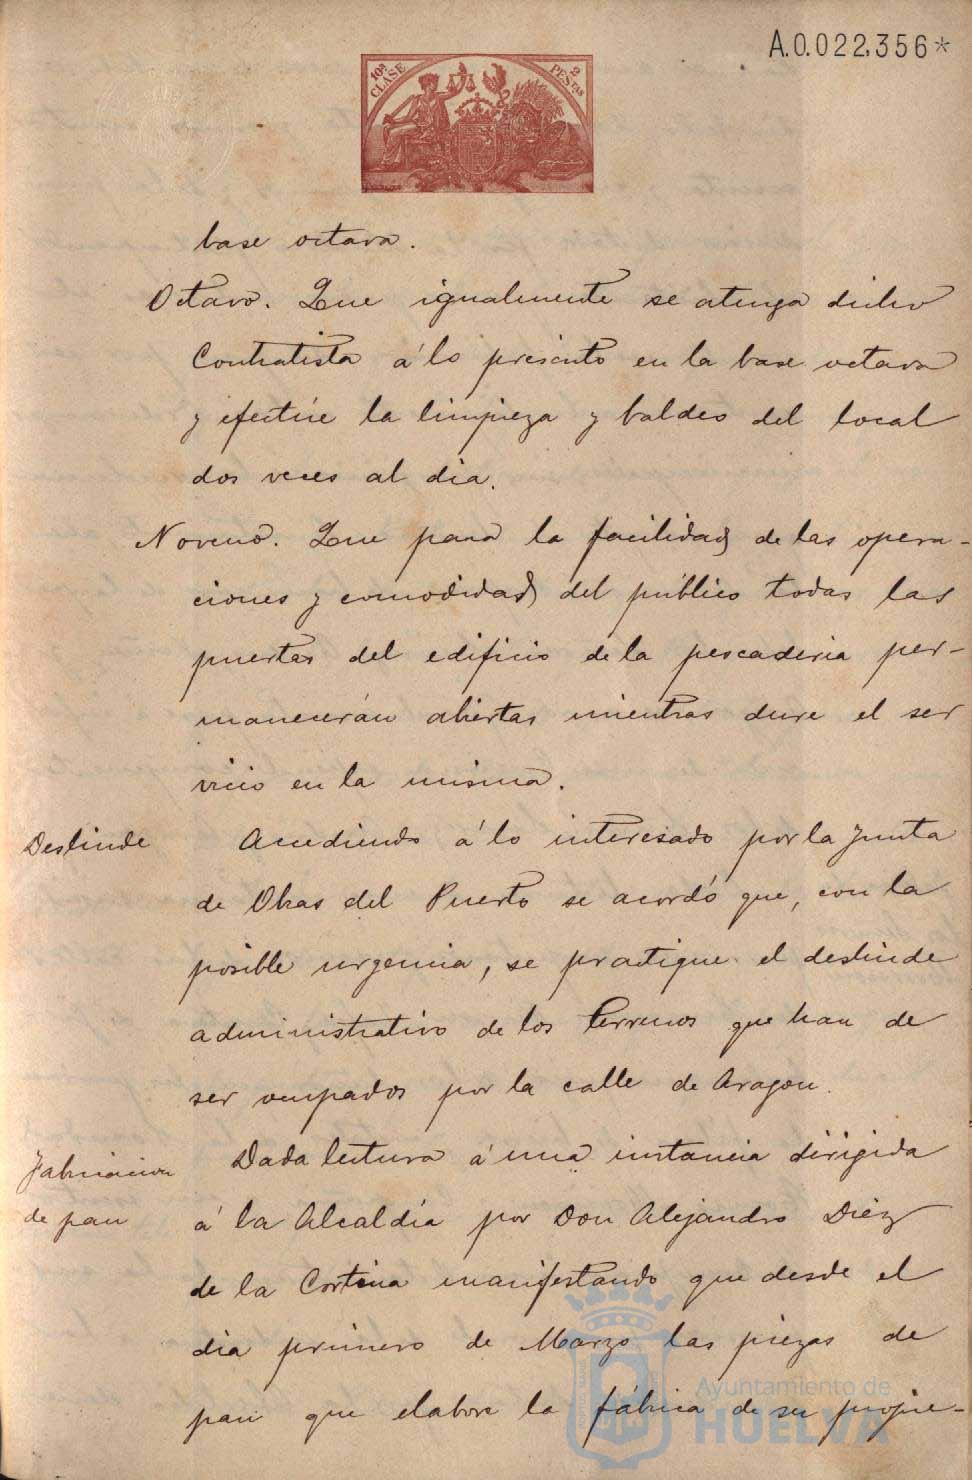 A.0.022,356*
10ª CLASE
2 PESTAS
base octava.
Octavo. Que igualmente se atenga dicho
Contratista á lo prescrito en la base octava
y efectúe la limpieza y baldeo del local
dos veces al dia.
Noveno. Que para la facilidad de las opera-
ciones y comodidad del público todas las
puertas del edificio de la pescaderia per-
manecerán abiertas mientras dure el ser
vicio en la misma.
Deslinde
Accediendo á lo interesado por la Junta
de Obras del Puerto se acordó que, con la
posible urgencia, se practique el deslinde
administrativo de los terrenos que han de
ser ocupados por la calle de Aragon.
Fabricacion
de pan
Dada lectura á una instancia dirigida
á la Alcaldía por Don Alejandro Diéz
de la Cortina manifestando que desde el
dia primero de Marzo las piezas de
pan que elabore la fábrica de su propie-
Ayuntamiento de
HUELVA